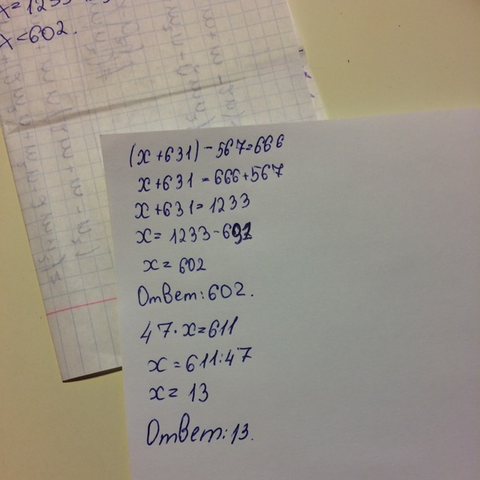 x=1233
x=602.
(x+631)-567=666
x+631=666+567
x+631=1233
x=1233-631
x=602
Ответ:602.
47·x=611
x=611:47
x=13
Ответ:13.